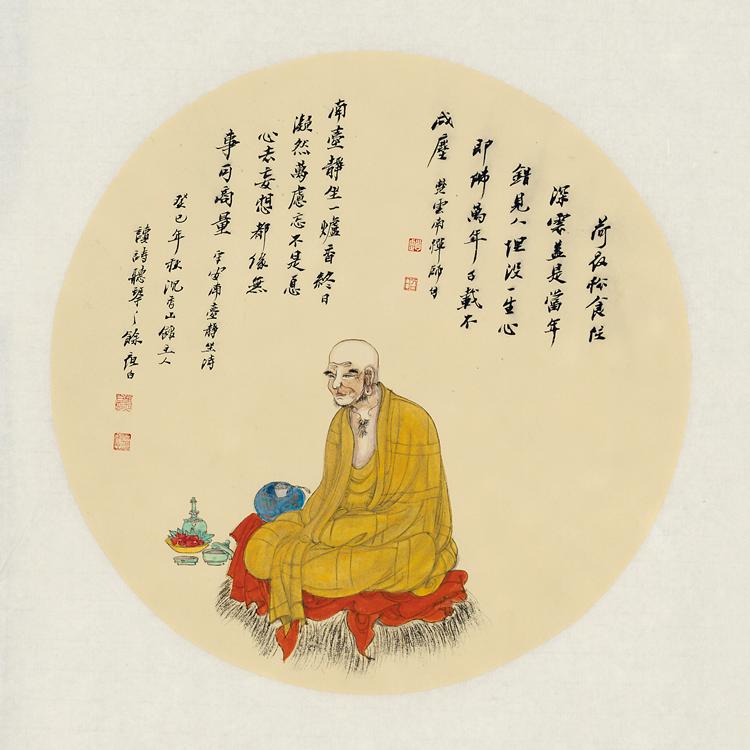 荷衣松食住
深雲蓋是當年
錯見人埋没一生心
即佛萬年千載不
成塵 楚雲南禪師句
南臺靜坐一爐香終日
凝然萬慮忘不是息
心去妄想都緣無
事可商量 守安南臺靜坐詩
癸巳年秋沉香山館主人
讀詩聽琴之餘